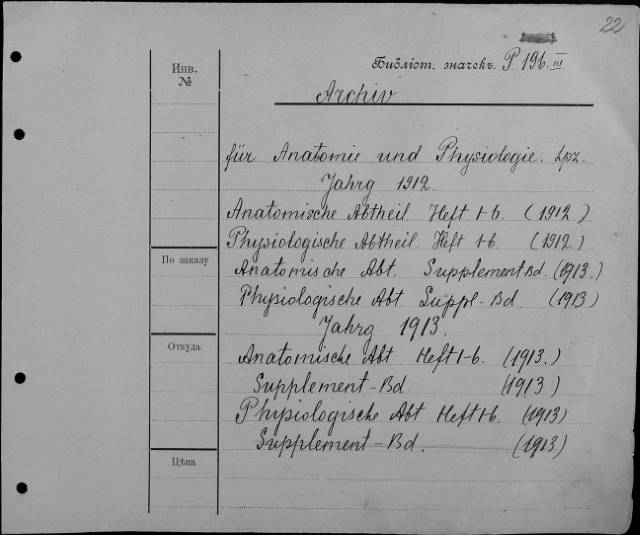 22
Инв.
№
Библіот. значекъ. P 196 III
Archiv
für Anatomie und Physiologie. Lpz.
Jahrg 1912.
Anatomische Abtheil Heft 1-6. (1912)
Physiologische Abtheil. Heft 1-6. (1912.)
По заказу
Anatomische Abt. Supplement Bd. (1913.)
Physiologische Abt Suppl-Bd. (1913)
Jahrg 1913.
Откуда
Anatomische Abt Heft 1-6. (1913.)
Supplement-Bd (1913)
Physiologische Abt Heft 1-6. (1913)
Supplement-Bd. (1913.)
Цѣна